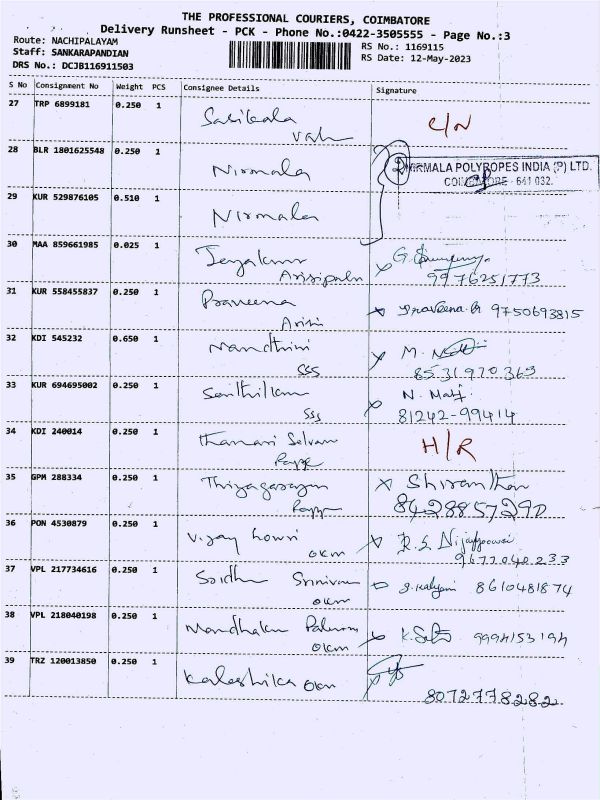 THE PROFESSIONAL COURIERS, COIMBATORE
Delivery Runsheet - PCK - Phone No.:0422-3505555 - Page No.:3
Route: NACHIPALAYAM
Staff: SANKARAPANDIAN
DRS No.: DCJB116911503
RS No.: 1169115
RS Date: 12-May-2023
S No Consignment No Weight PCS Consignee Details Signature
27 TRP 6899181 0.250 1 Sasikala C/N
28 BLR 1801625548 0.250 1 Nirmala
NIRMALA POLYROPES INDIA (P) LTD.
COIMBATORE - 641 032.
29 KUR 529876105 0.510 1 Nirmala
30 MAA 859661985 0.025 1 Jeyakumar
9976251773
31 KUR 558455837 0.250 1 Praveena Praveena 9750693815
32 KDI 545232 0.650 1 Nandhini M.
SSS 8531970365
33 KUR 694695002 0.250 1 Senthilkumar N.
SSS 81242-99414
34 KDI 240014 0.250 1 Selvam H/R
35 GPM 288334 0.250 1 Thiyagarajan
8428857290
36 PON 4530879 0.250 1 Vijay
okm 9677040233
37 VPL 217734616 0.250 1 Srinivasan 8610481874
okm
38 VPL 218040198 0.250 1 K. 9994153194
okm
39 TRZ 120013850 0.250 1 okm
8072778282